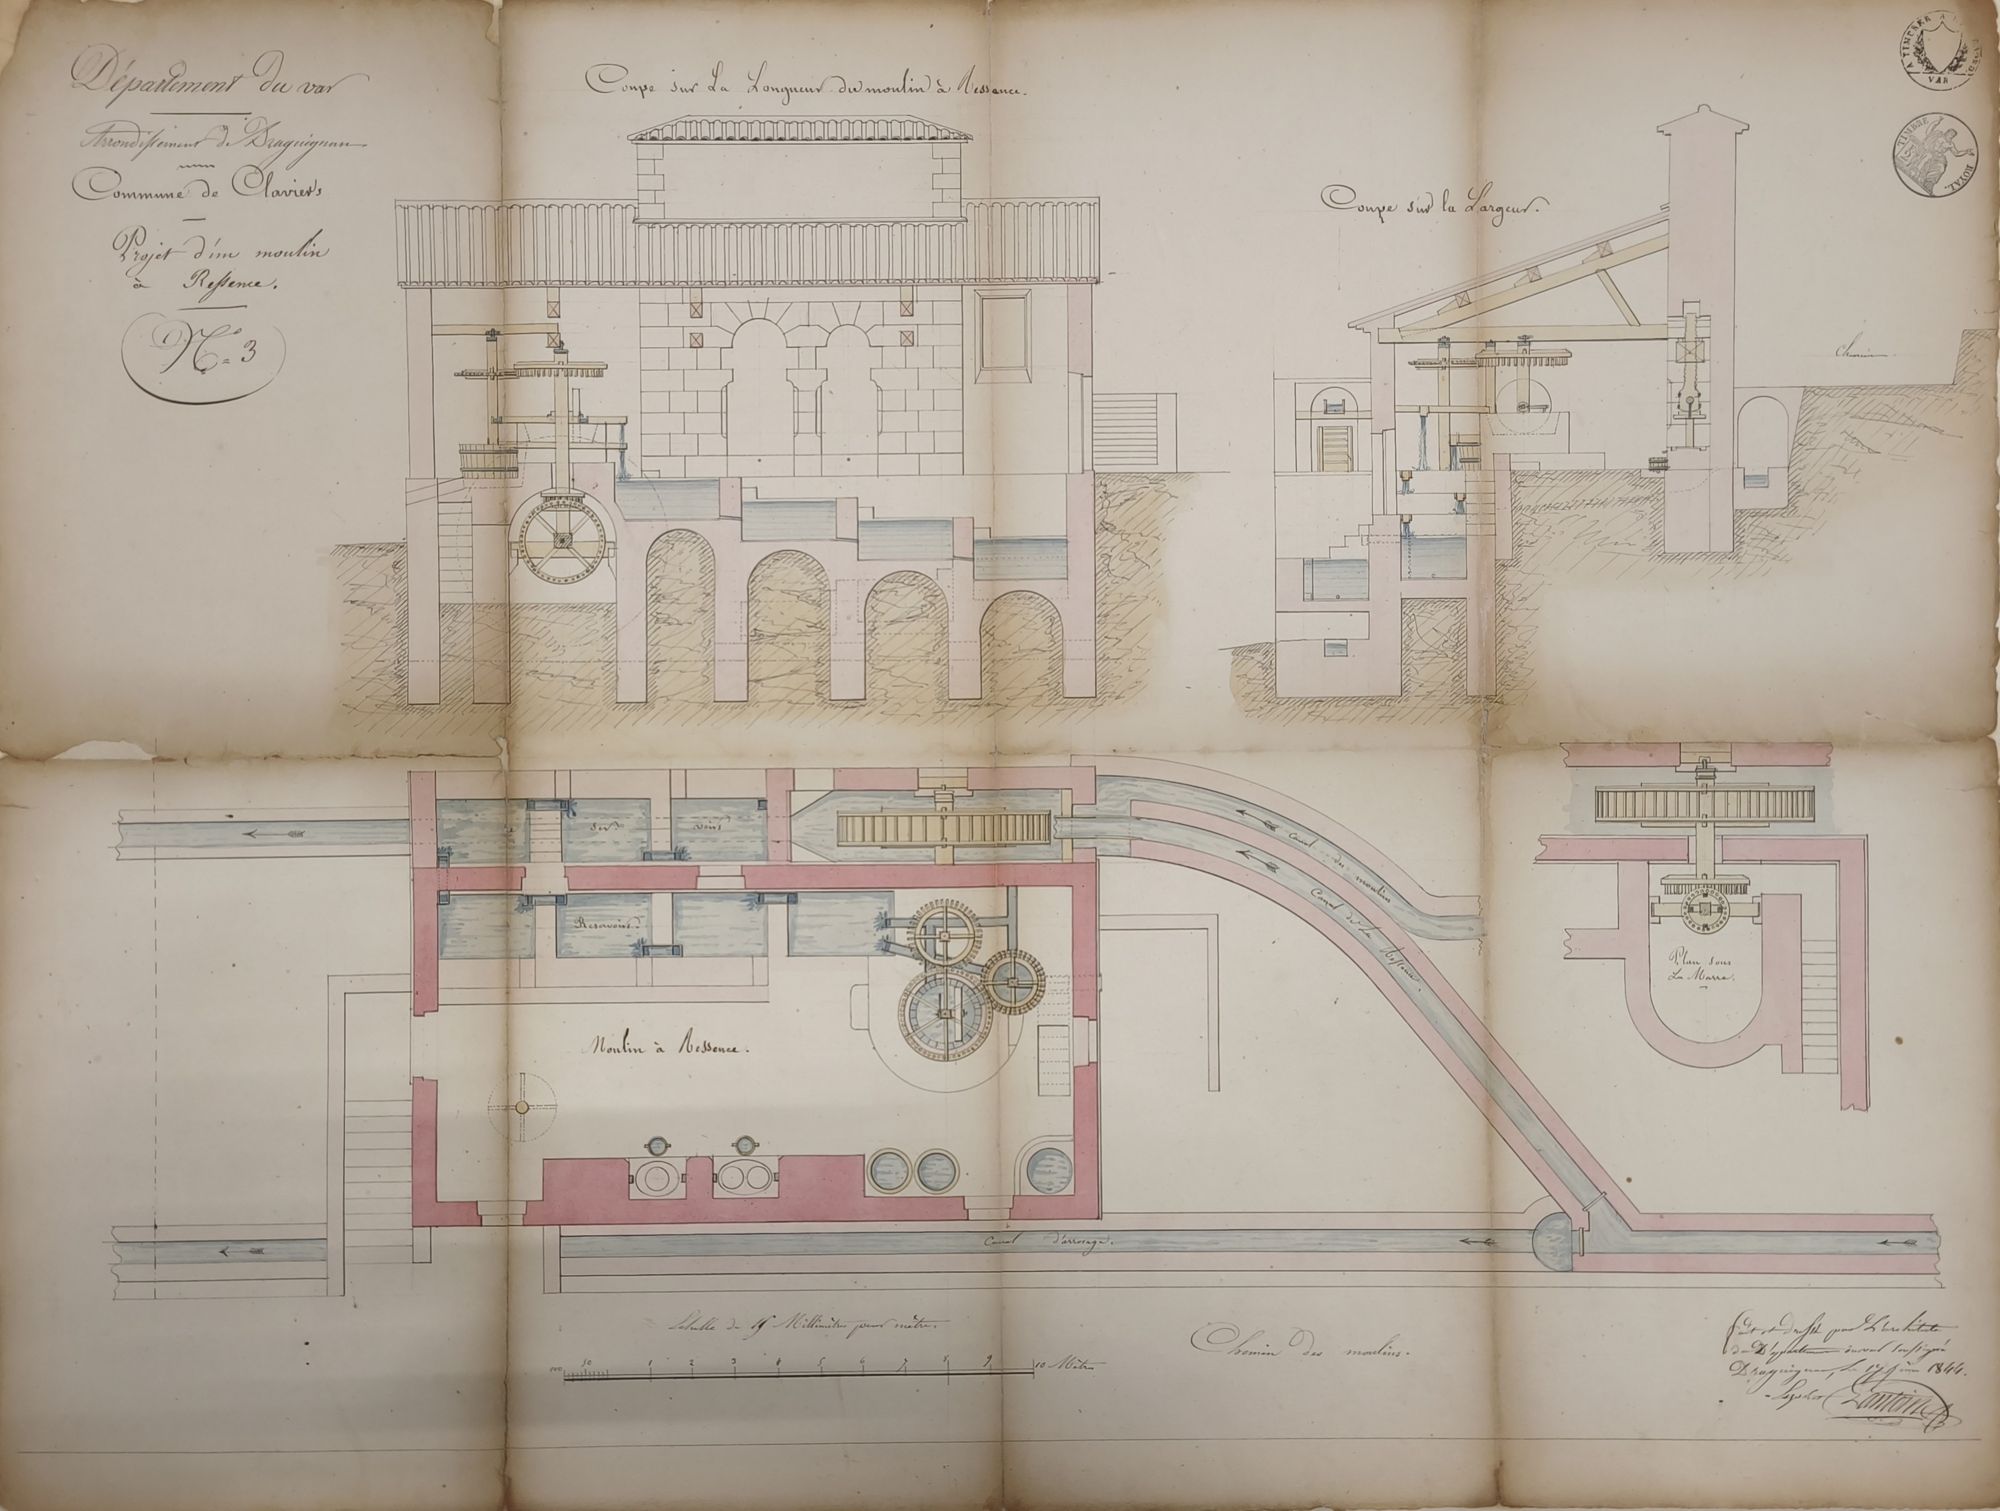 Département du var
Arrondissement de Draguignan
Commune de Claviers
Projet d'un moulin
à Ressence.
N.o = 3
Coupe sur La Longueur du moulin à Ressence.
Coupe sur la Largeur.
A TIMBRER A
VAR
TIMBRE
ROYAL
Chemin
Ré ser voirs
Reservoirs
Moulin à Ressence.
Canal du moulin
Canal de La Ressence
Plan sous
La Marre.
Canal d'arrosage.
Echelle de 15 Millimètres pour mètre.
100 50 1 2 3 4 5 6 7 8 9 10 Mètres
Chemin des moulins.
fait et dressé par L'architecte
du Département soussigné
Draguignan, le 17 juin 1844.
Lantoin